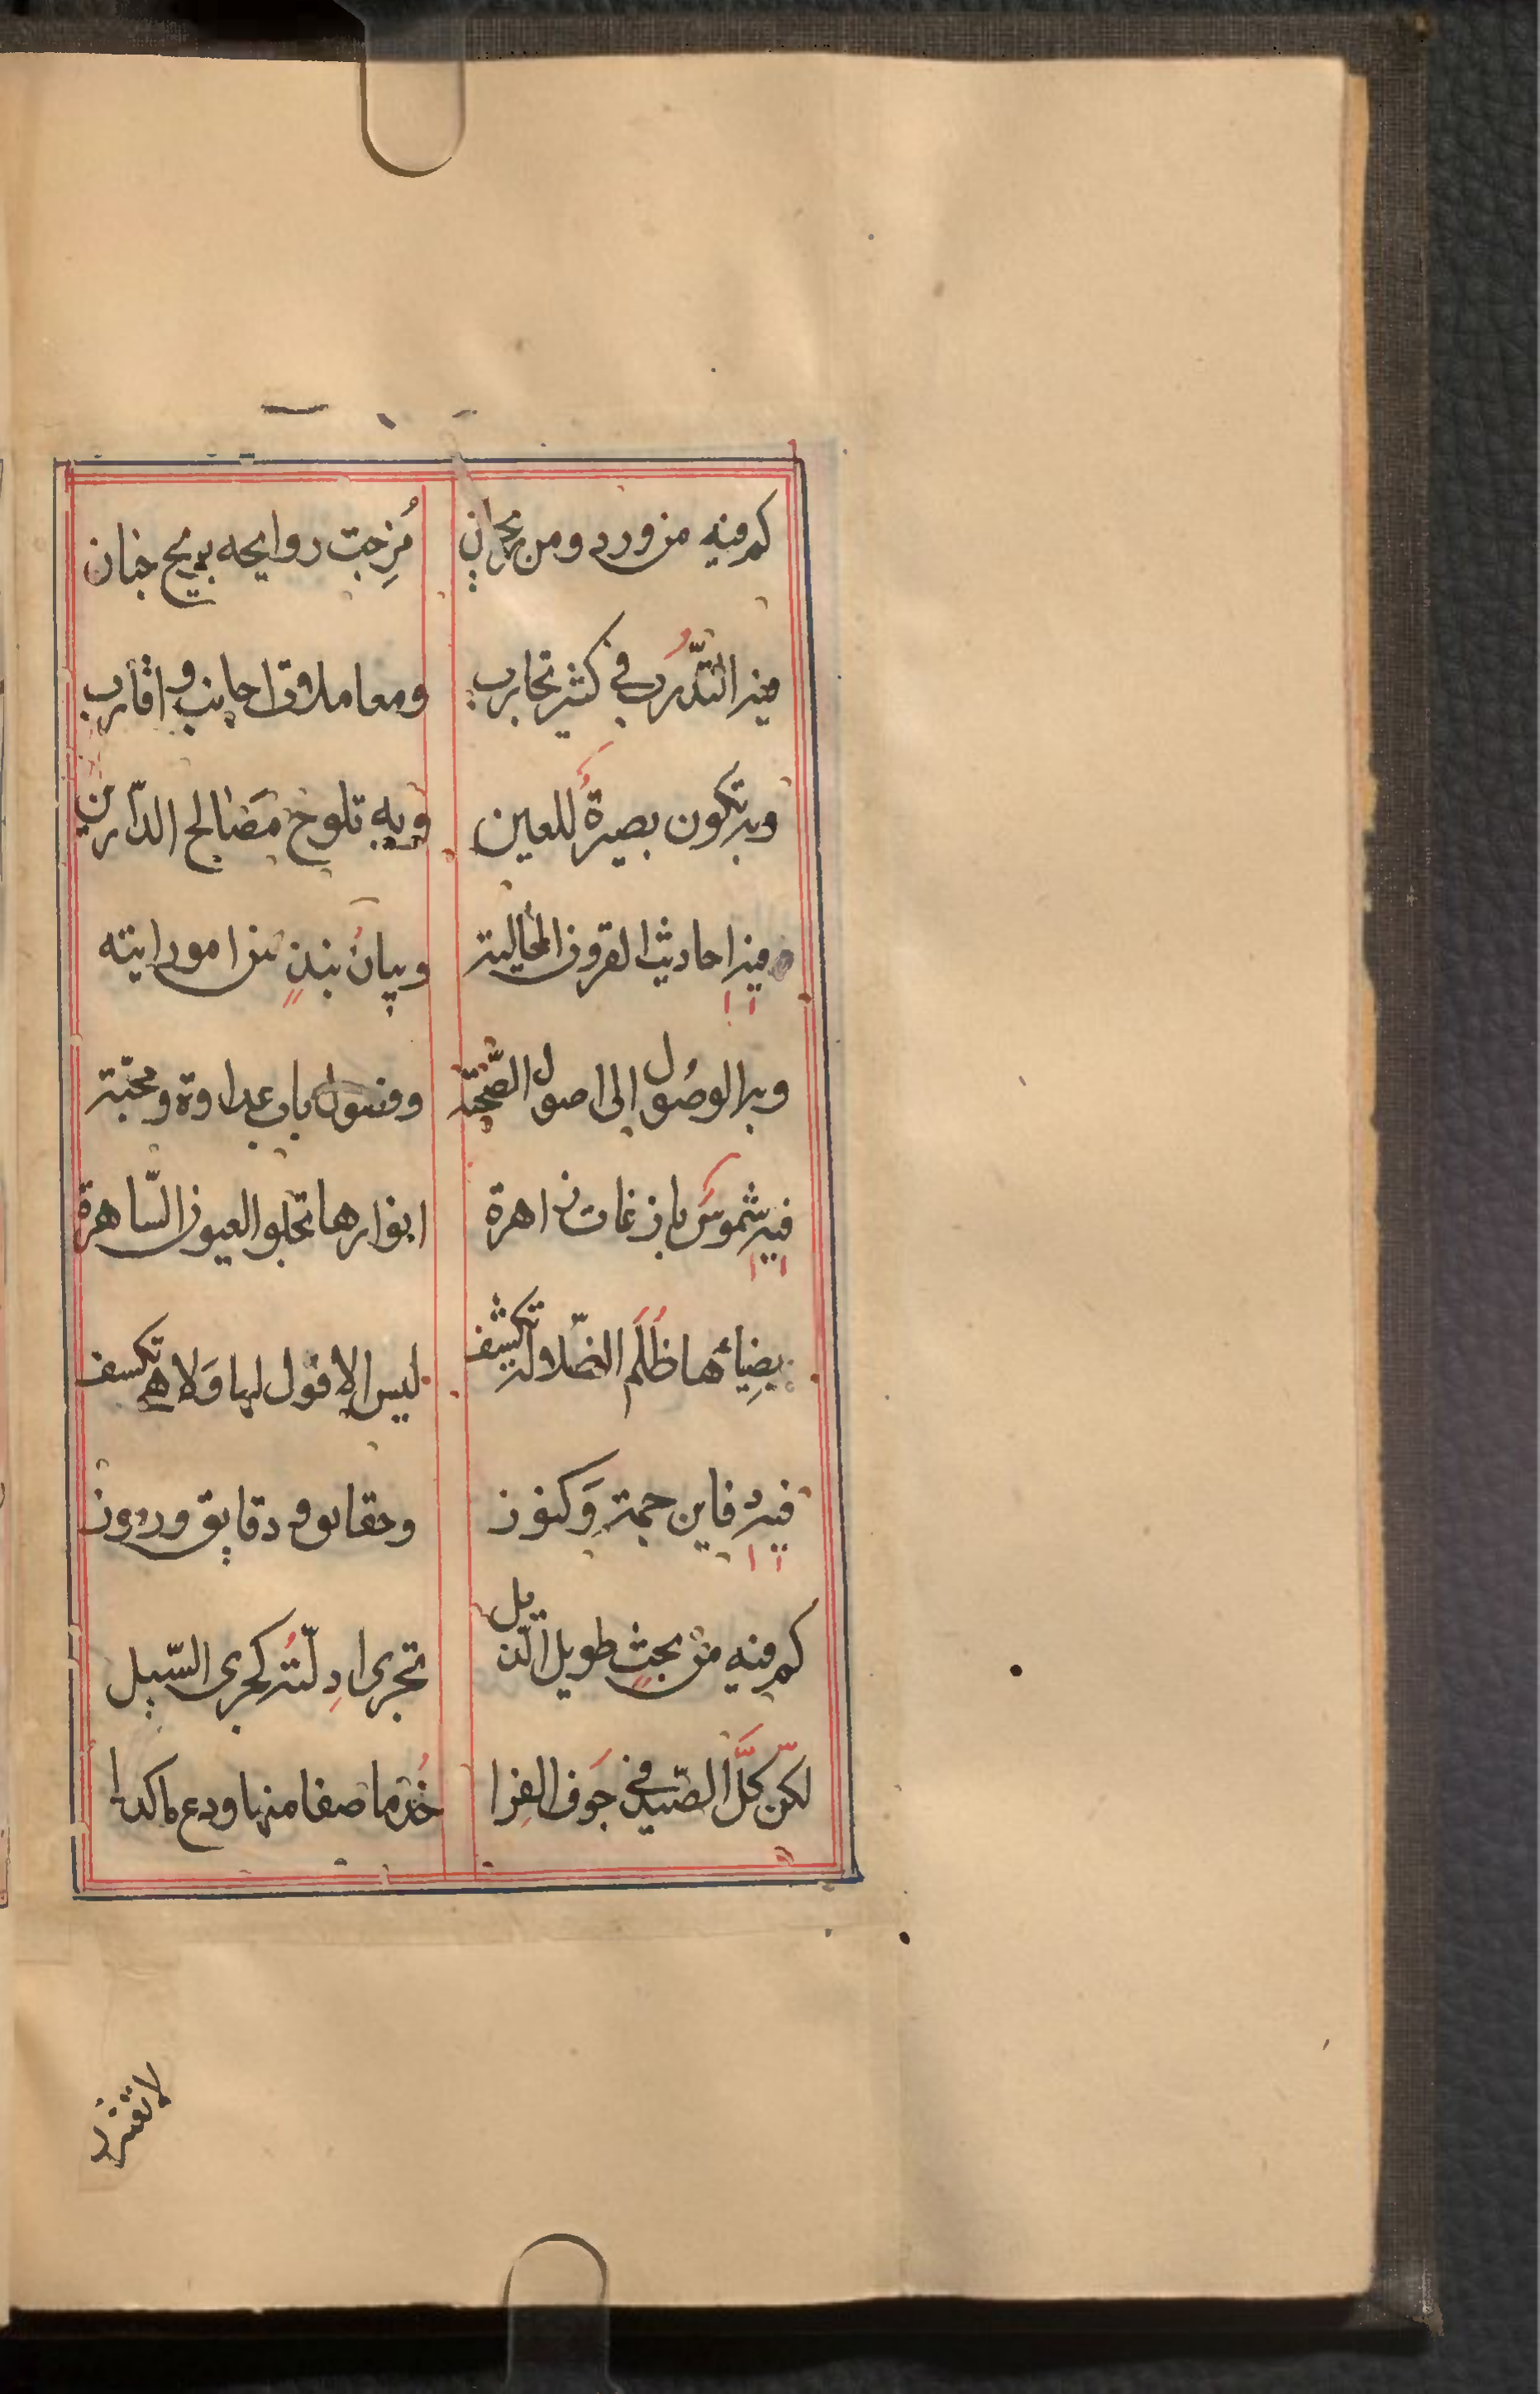 كم فيه من ورد ومن ريحان مُزِجت روايحه بريح جنان
فيه التّدرُب في كثير تجارب ومعاملاة اجانب واقارب
وبه تكون بصيرةُ للعين وبه تلوح مصَالح الدّارين
فيه احاديث القرون الخالية وبيانُ نبذٍ من امور اتيه
وبه الوصُول الى اصول الصّحّة وفنون باب عداوة ومحبّة
فيه شموسَ بازغات زاهرة انوارها تجلو العيون السّاهرة
بضِيائها ظُلَم الضّلالة تكشف ليس الافول لها وَلا هي تكسف
فيه دفاين جمة وَكنوز وحقايق ودقايق ورموز
كم فيه من بحثٍ طويل الذّيل تجرى ادِلّتُه كجرى السّيل
لكنّ كلَّ الصّيد في جَوف الفِرا خُذ ما صفا منها ودع ما كدرا